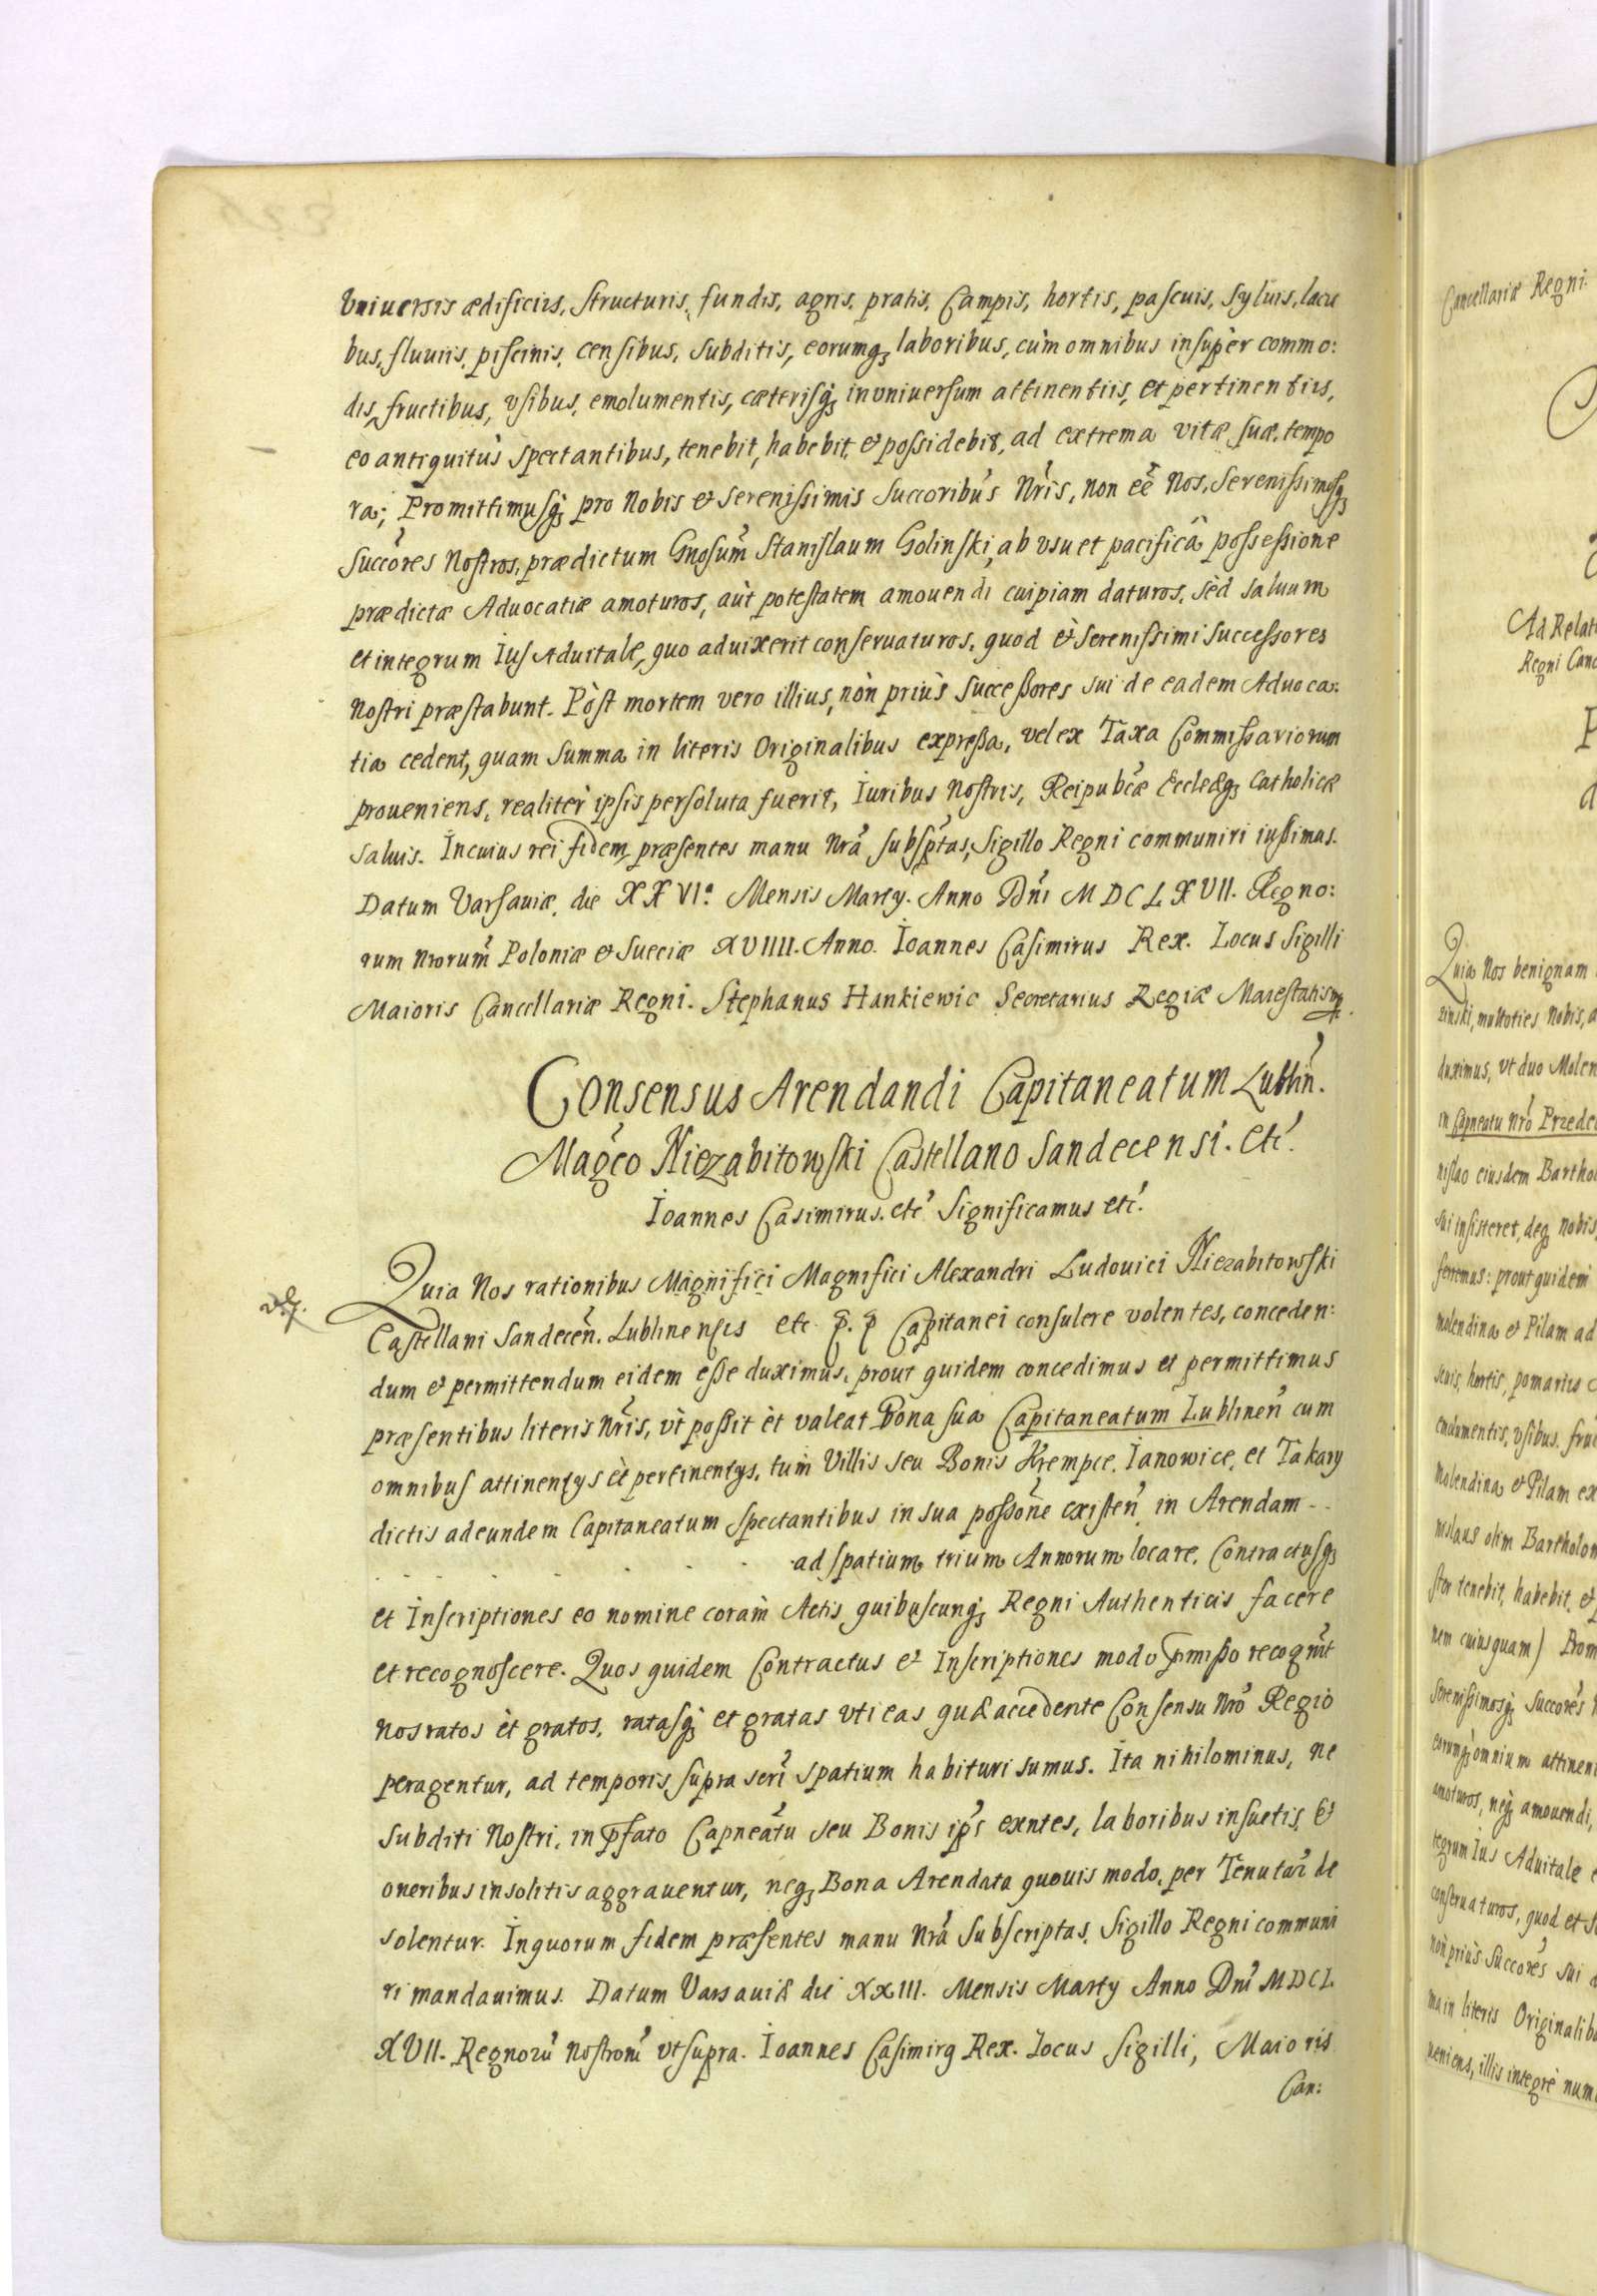 Vniuersis ædificiis, structuris, fundis, agris, pratis, Campis, hortis, pascuis, syluis, lacu
bus, fluuiis, piscinis, censibus, subditis, eorumq; laboribus, cùm omnibus insupèr commo:
dis, fructibus, vsibus, emolumentis, cæterisq; in vniuersum attinentiis, et pertinentiis,
eo antiquitùs spectantibus, tenebit, habebit, et possidebit, ad extrema vitæ suæ tempo
ra; Promittimusq; pro Nobis et Serenissimis Succoribus Nris, non eê Nos, Serenissimosq;
Succores Nostros, prædictum Gnosum Stanislaum Golinski, ab vsu et pacificâ possessione
prædictæ Aduocatiæ amoturos, aùt potestatem amouendi cuipiam daturos, sèd saluum
et integrum Ius Aduitale, quo aduixerit conseruaturos, quod èt Serenissimi Successores
Nostri præstabunt. Pòst mortem vero illius, nòn priùs Successores sui de eadem Aduoca:
tia cedent, quam Summa in literis Originalibus expressa, vel ex Taxa Commissariorum
proueniens, realitèr ipsis persoluta fuerit, Iuribus Nostris, Reipubcæ Ecclæq; Catholicæ
saluis. In cuius rei fidem præsentes manu Nrâ subsptas, Sigillo Regni communiri iussimus.
Datum Varsauiæ, die XXVIa Mensis Marty. Anno Dni MDCLXVII. Regno:
rum Nrorum Poloniæ et Sueciæ XVIIII. Anno. Ioannes Casimirus Rex. Locus Sigilli
Maioris Cancellariæ Regni. Stephanus Hankiewic Secretarius Regiæ Maiestatis mp.
Consensus Arendandi Capitaneatum Lublin.
Magco Niezabitowski Castellano Sandecensi. etc.
Ioannes Casimirus. etc Significamus etc.
Quia Nos rationibus Magnifici Magnifici Alexandri Ludouici Niezabitowski
Castellani Sandecen. Lublinensis etc. p. p Capitanei consulere volentes, conceden:
dum et permittendum eidem esse duximus, prout quidem concedimus et permittimus
præsentibus literis Nris, vt possit èt valeat Bona sua Capitaneatum Lublinen cum
omnibus attinentys èt pertinentys, tum Villis seu Bonis Krempce, Ianowice, et Takary
dictis ad eundem Capitaneatum spectantibus in sua possone existen in Arendam - -
ad spatium trium Annorum locare, Contractusq;
et Inscriptiones eo nomine coràm Actis quibuscunq; Regni Authenticis facere
et recognoscere. Quos quidem Contractus et Inscriptiones modo pmisso recognit
nos ratos èt gratos, ratasq; et gratas vti eas quæ accedente Consensu Nro Regio
peragentur, ad temporis supra scri spatium habituri sumus. Ita nihilominus, ne
subditi Nostri, in pfato Capneatu seu Bonis ips exntes, laboribus insuetis, et
oneribus insolitis aggrauentur, neq; Bona Arendata quouis modo, per Tenutar de
solentur. In quorum fidem præsentes manu Nrâ subscriptas, Sigillo Regni communi
ri mandauimus. Datum Varsauiæ die XXIII. Mensis Marty Anno Dni MDCL
XVII. Regnorũ Nostrorũ vt supra. Ioannes Casimirq Rex. Locus Sigilli, Maioris
Can:
Cancellariæ Regni.
Ad Relat
Regni Canc
Quia Nos benignam
zinski, multoties Nobis, a
duximus, vt duo Molen
in Capneatu Nro Przedc
nislao eiusdem Barthol
sui insisteret, deq; nobis
ferremus: prout quidem
molendina et Pilam ad
senis, hortis, pomariis
emolumentis, vsibus, fruc
Molendina et Pilam ex
nislaus olim Bartholom
stor tenebit, habebit, et p
nem cuiusquam) Prom
Serenissimosq; Succores N
eorumq; omnium attinen
amoturos, neq; amouendi,
tegrum Ius Aduitale
conseruaturos, quod et S
nòn priùs Succores sui
ma in literis Originalibu
ueniens, illis integrè num